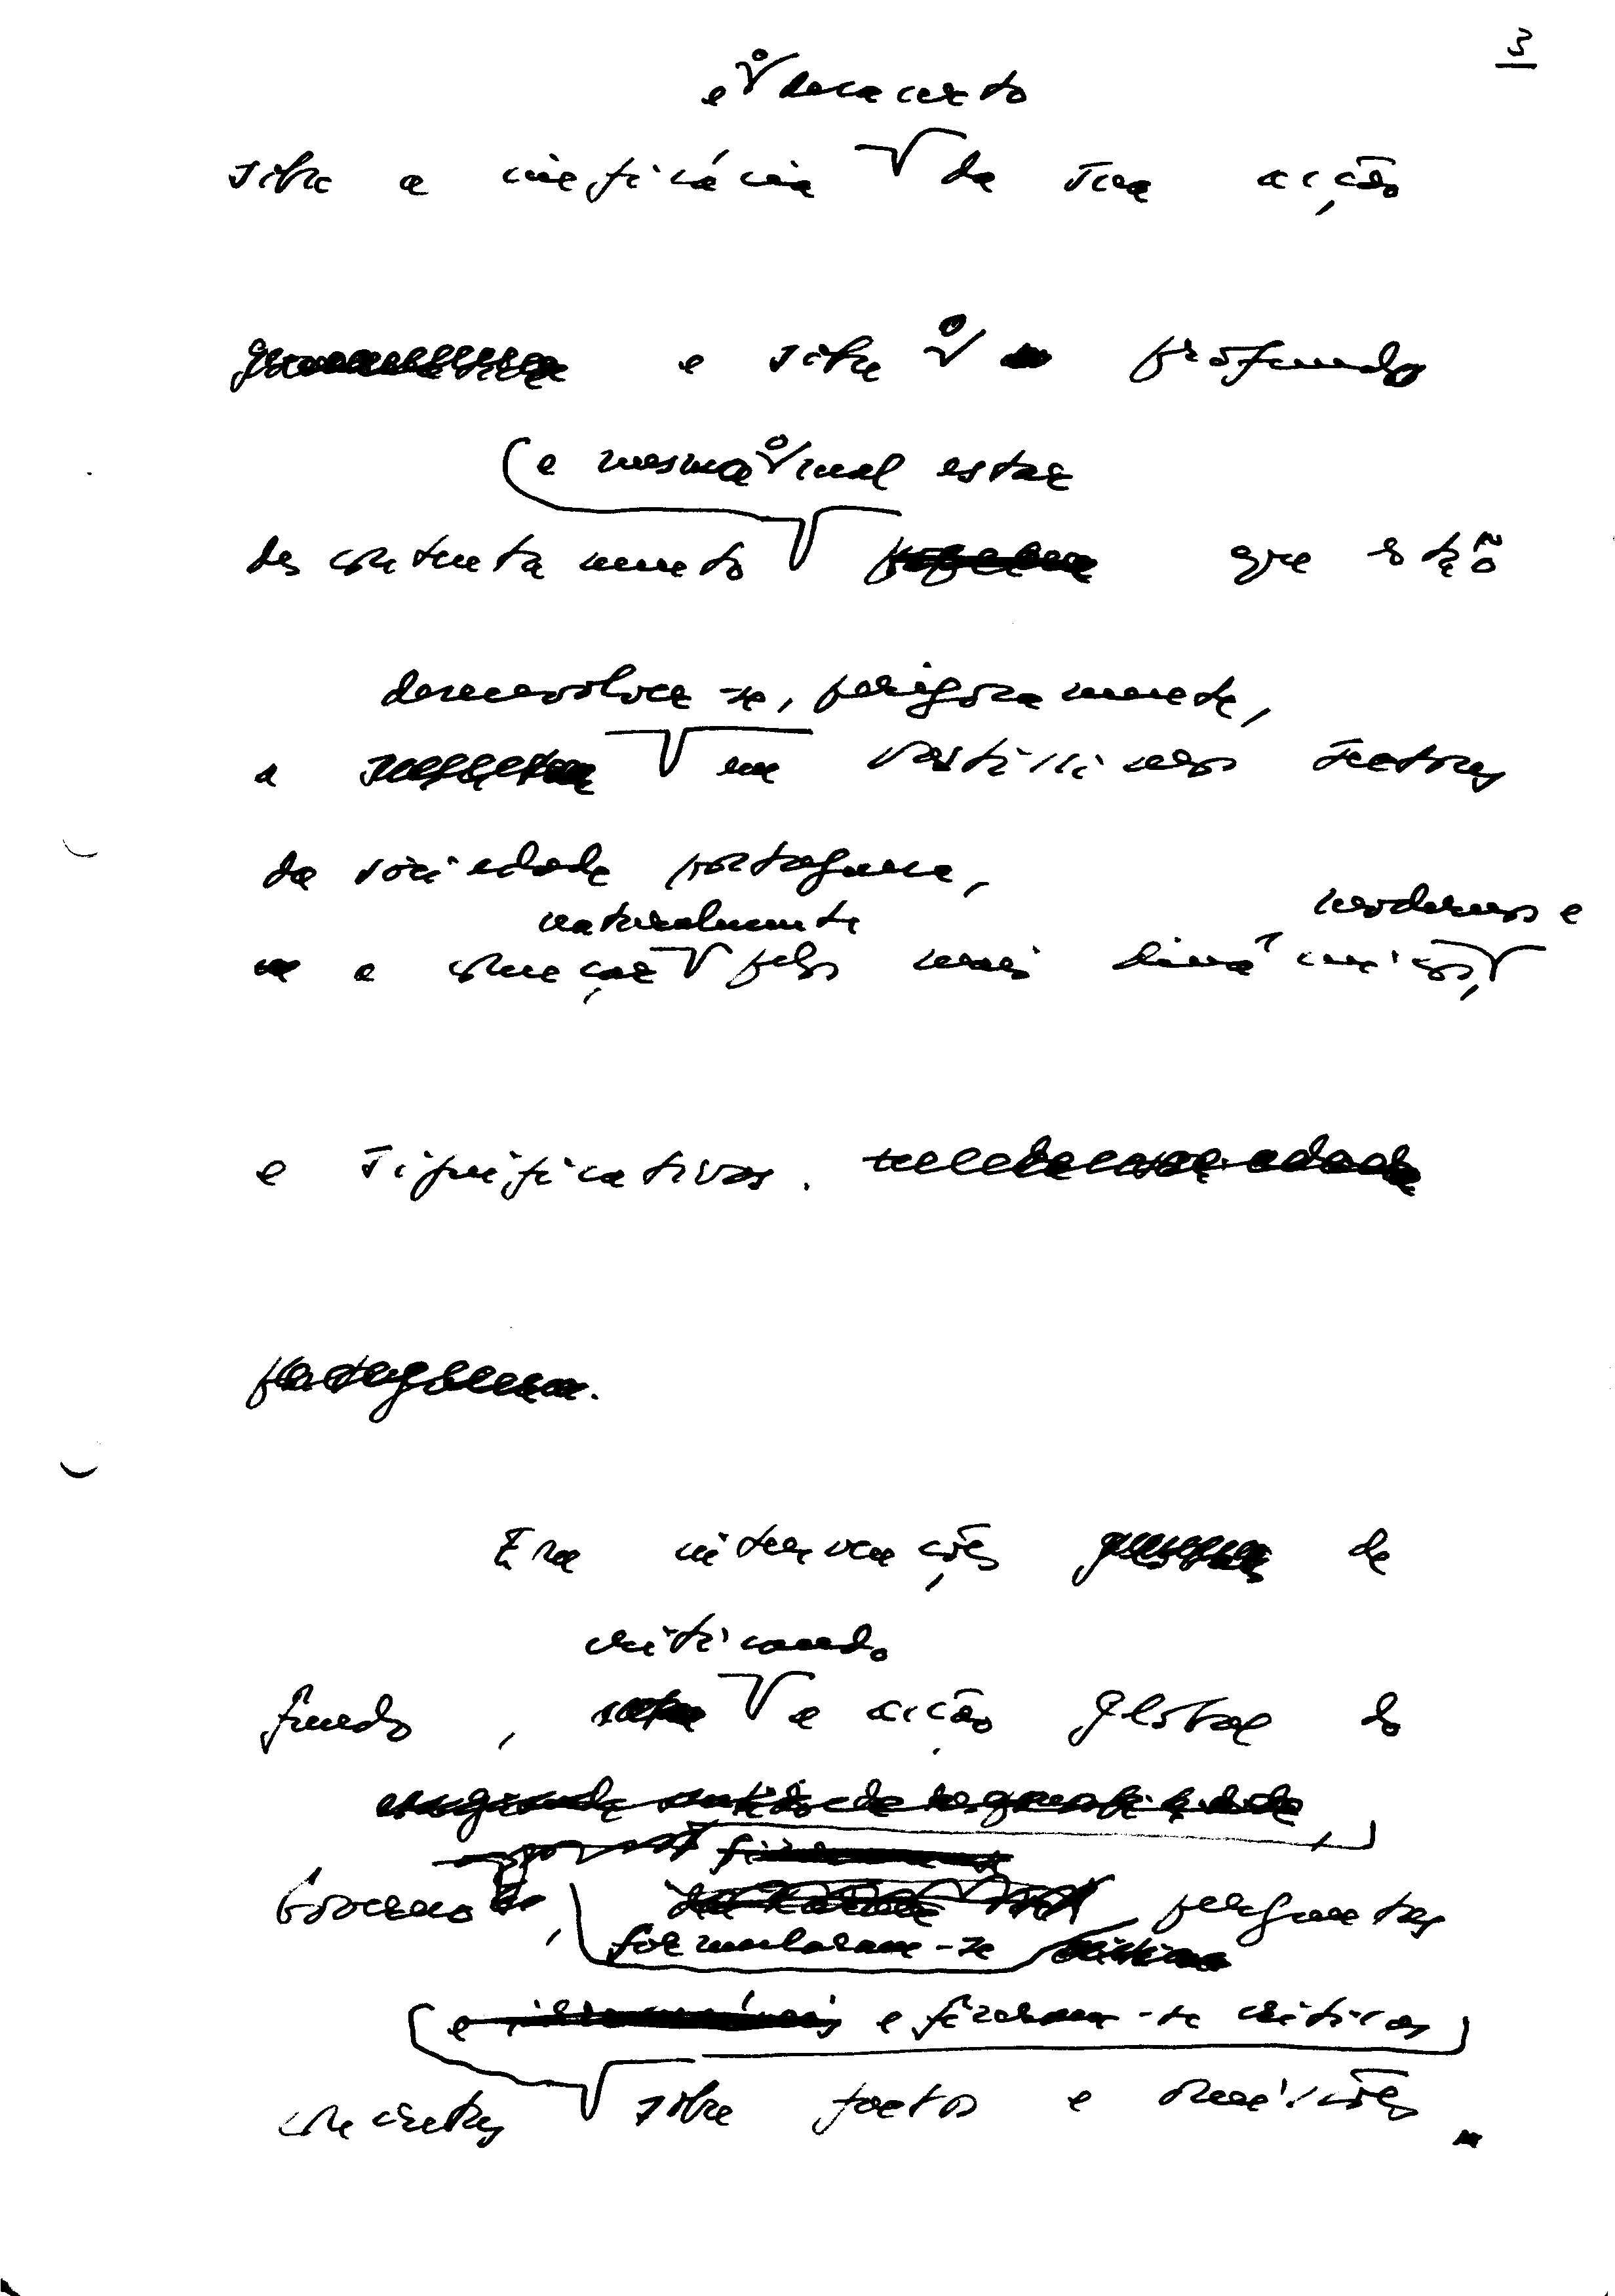 3
e o desacerto
sobre a ineficácia da sua acção
e sobre o profundo
(e mesmo o mal estar
descontentamento que estão
desenvolver-se, perigosamente,
a em vastíssimos sectores
da sociedade portuguesa,
naturalmente modernos e
a começar pelos mais dinâmicos,
e significativos.
Em intervenções de
criticando
fundo, a acção global do
Governo, perguntas
formularam-se
e e fizeram-se críticas
concretas sobre factos e omissões